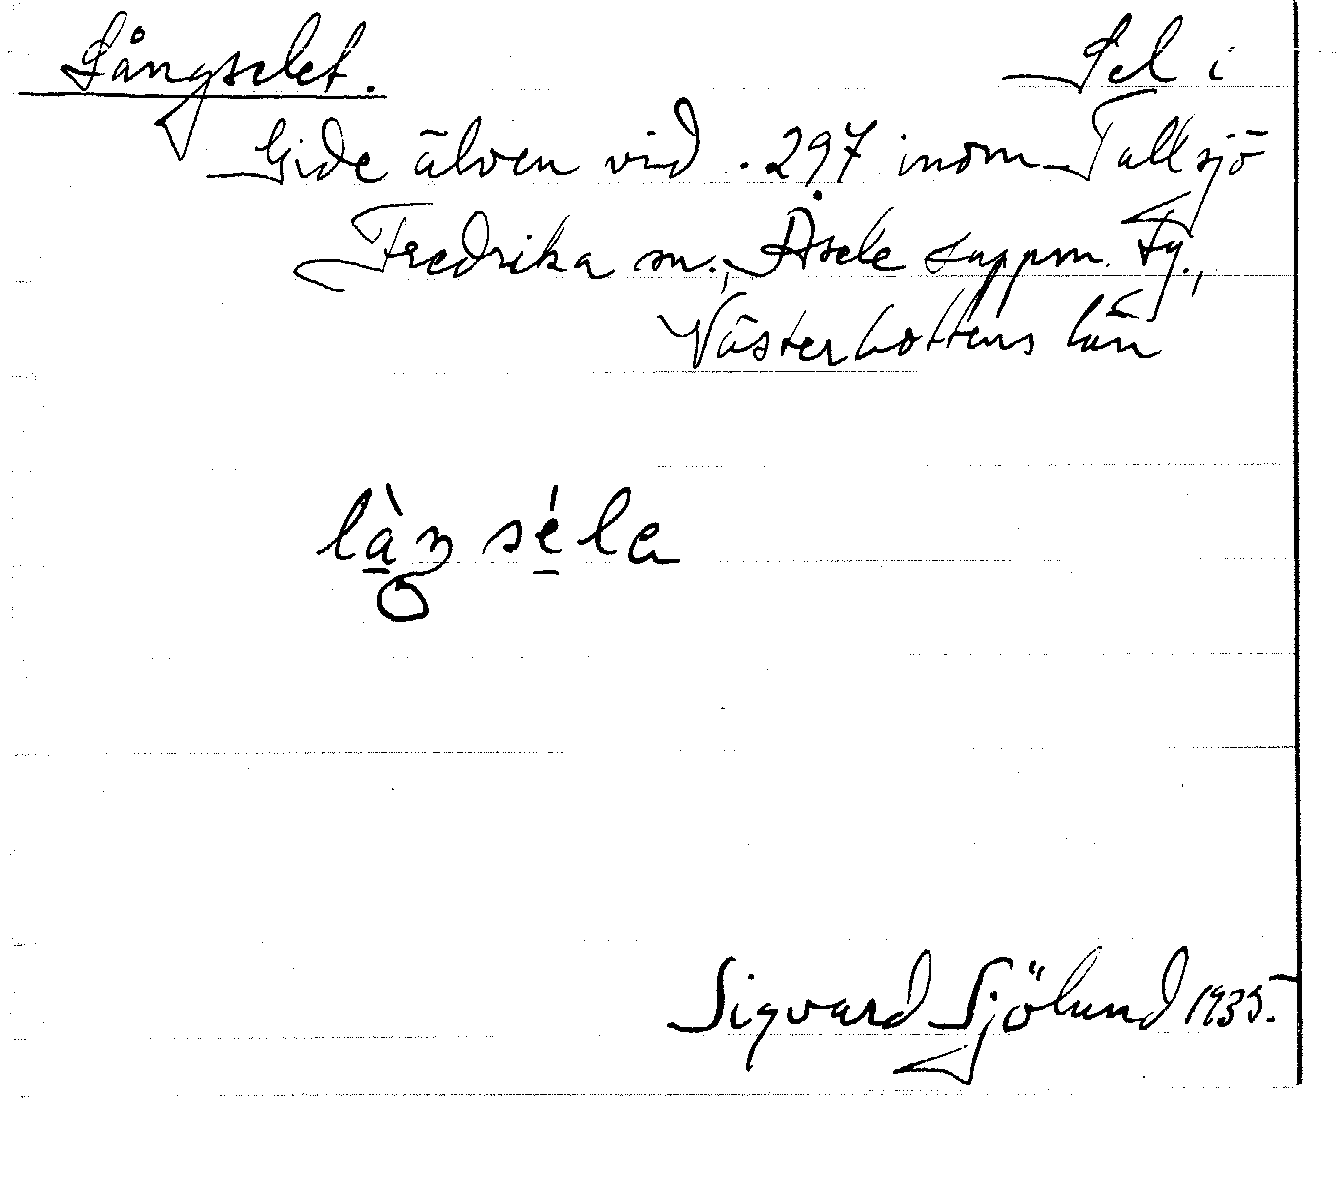 Långselet. Sel i
Gide älven vid . 297 inom Tallsjö
Fredrika sn., Åsele lappm. fg.,
Västerbottens län
làŋséla
Sigvard Sjölund 1935.